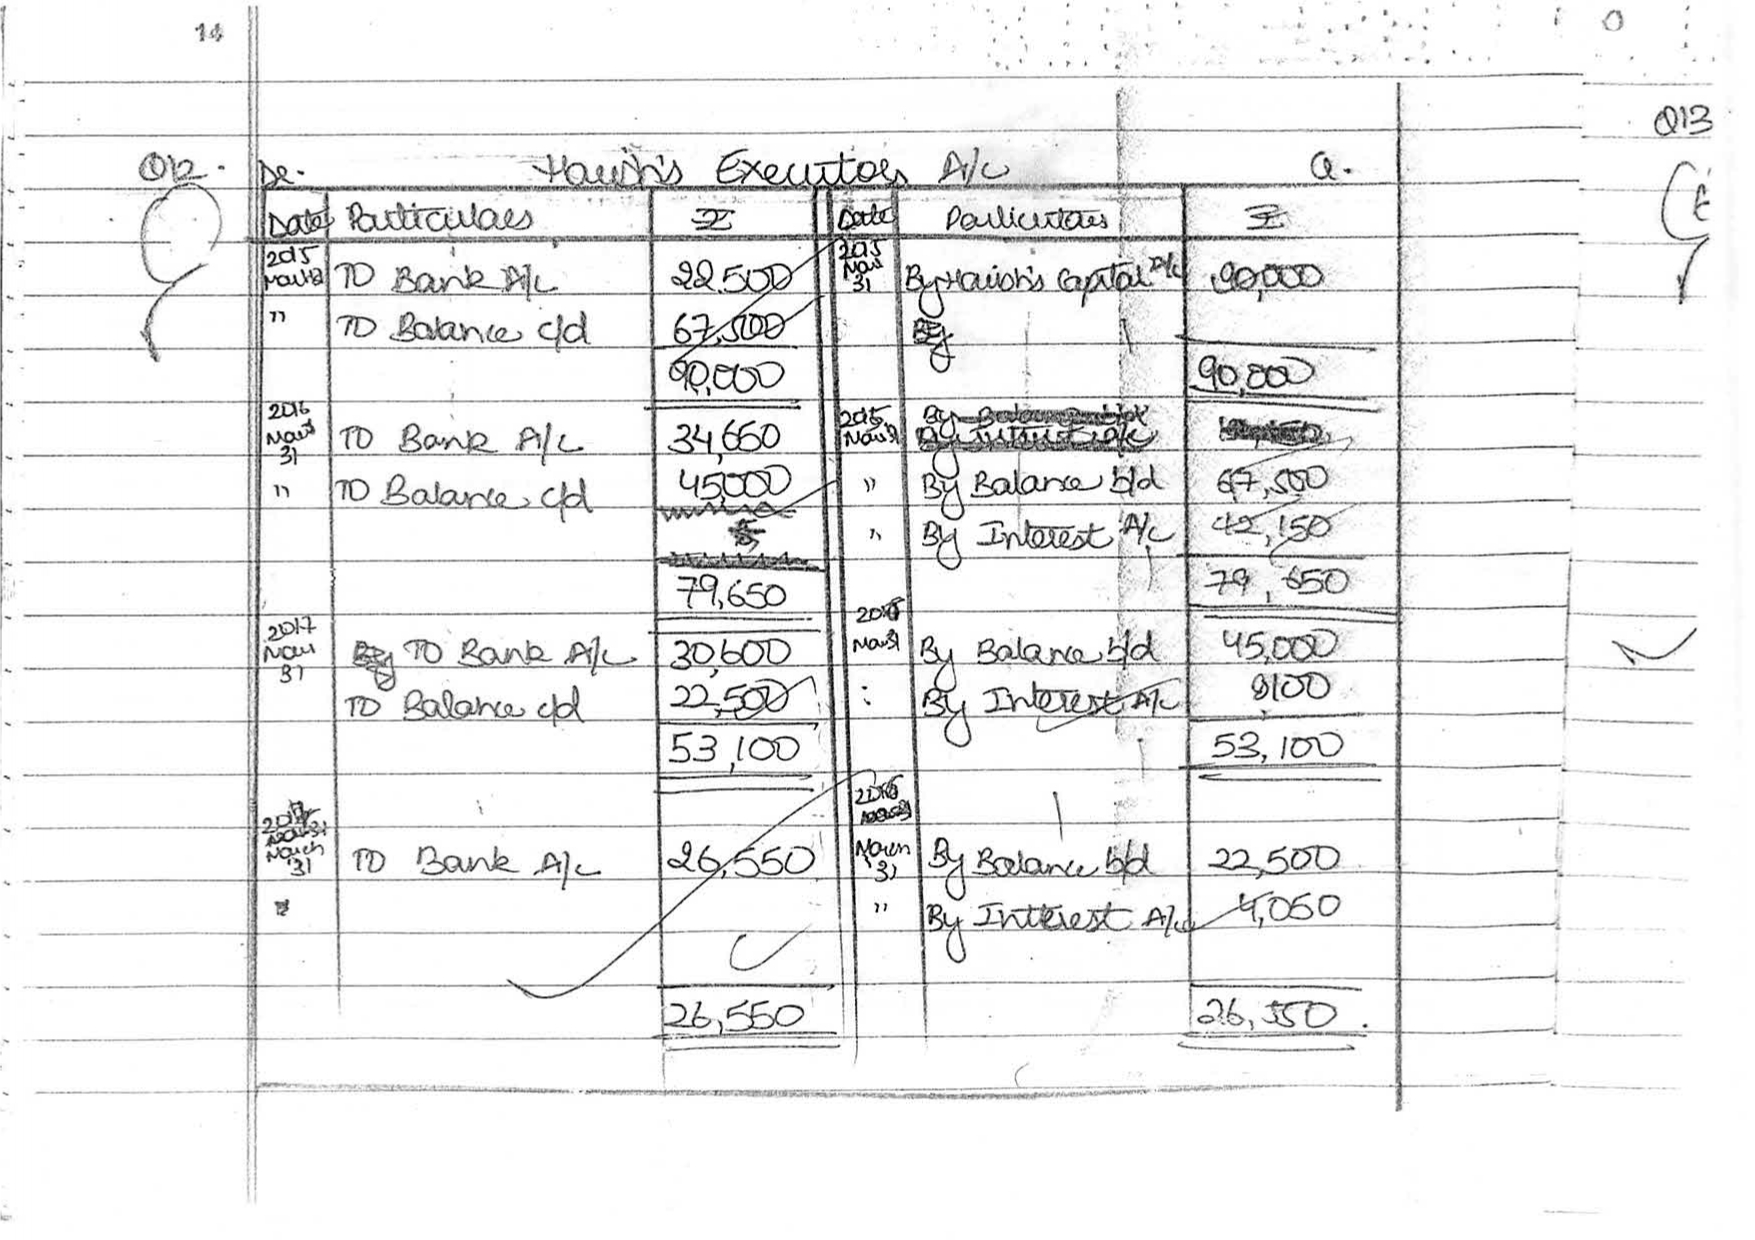 14
Q13
Q12. Dr. Harish's Executors A/c Cr.
Date Particulars ₹ Date Particulars ₹
2015 2015
TO Bank A/c 22,500 Mar 31 By Harish's Capital A/c 90,000
" TO Balance c/d 67,500 By
90,000 90,000
2016 2015
Mar 31 TO Bank A/c 34,650 Mar 31
" TO Balance c/d 45,000 " By Balance b/d 67,500
" By Interest A/c 12,150
79,650 79,650
2017
Mar 31 By TO Bank A/c 30,600 Mar 31 By Balance b/d 45,000
TO Balance c/d 22,500 : By Interest A/c 8100
53,100 53,100
March 31 TO Bank A/c 26,550 March 31 By Balance b/d 22,500
" By Interest A/c 4,050
26,550 26,550.